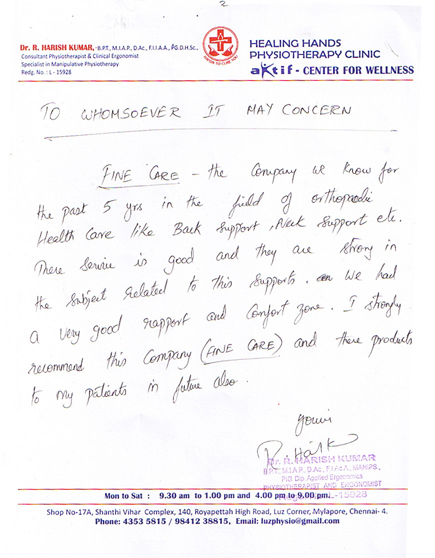 2
Dr. R. HARISH KUMAR, B.P.T., M.I.A.P., D.Ac., F.I.A.A., P.G.D.H.Sc.,
Consultant Physiotherapist & Clinical Ergonomist
Specialist in Manipulative Physiotherapy
Redg. No. : L - 15928
HEALING HANDS
PHYSIOTHERAPY CLINIC
aktif - CENTER FOR WELLNESS
TO WHOMSOEVER IT MAY CONCERN
FINE CARE - the Company we know for
the past 5 yrs in the field of orthopaedic
Health Care like Back Support, Neck Support etc.
There Service is good and they are strong in
the subject related to this Supports. We had
a very good rapport and Comfort zone. I strongly
recommend this Company (FINE CARE) and there products
to my patients in future also.
yours
Dr. R. HARISH KUMAR
B.P.T., M.I.A.P., D.Ac., F.I.A.A., MAHIPS.,
P.G. Dip. Applied Ergonomics
PHYSIOTHERAPIST AND ERGONOMIST
L-15928
Mon to Sat : 9.30 am to 1.00 pm and 4.00 pm to 9.00 pm.
Shop No-17A, Shanthi Vihar Complex, 140, Royapettah High Road, Luz Corner, Mylapore, Chennai- 4.
Phone: 4353 5815 / 98412 38815, Email: luzphysio@gmail.com